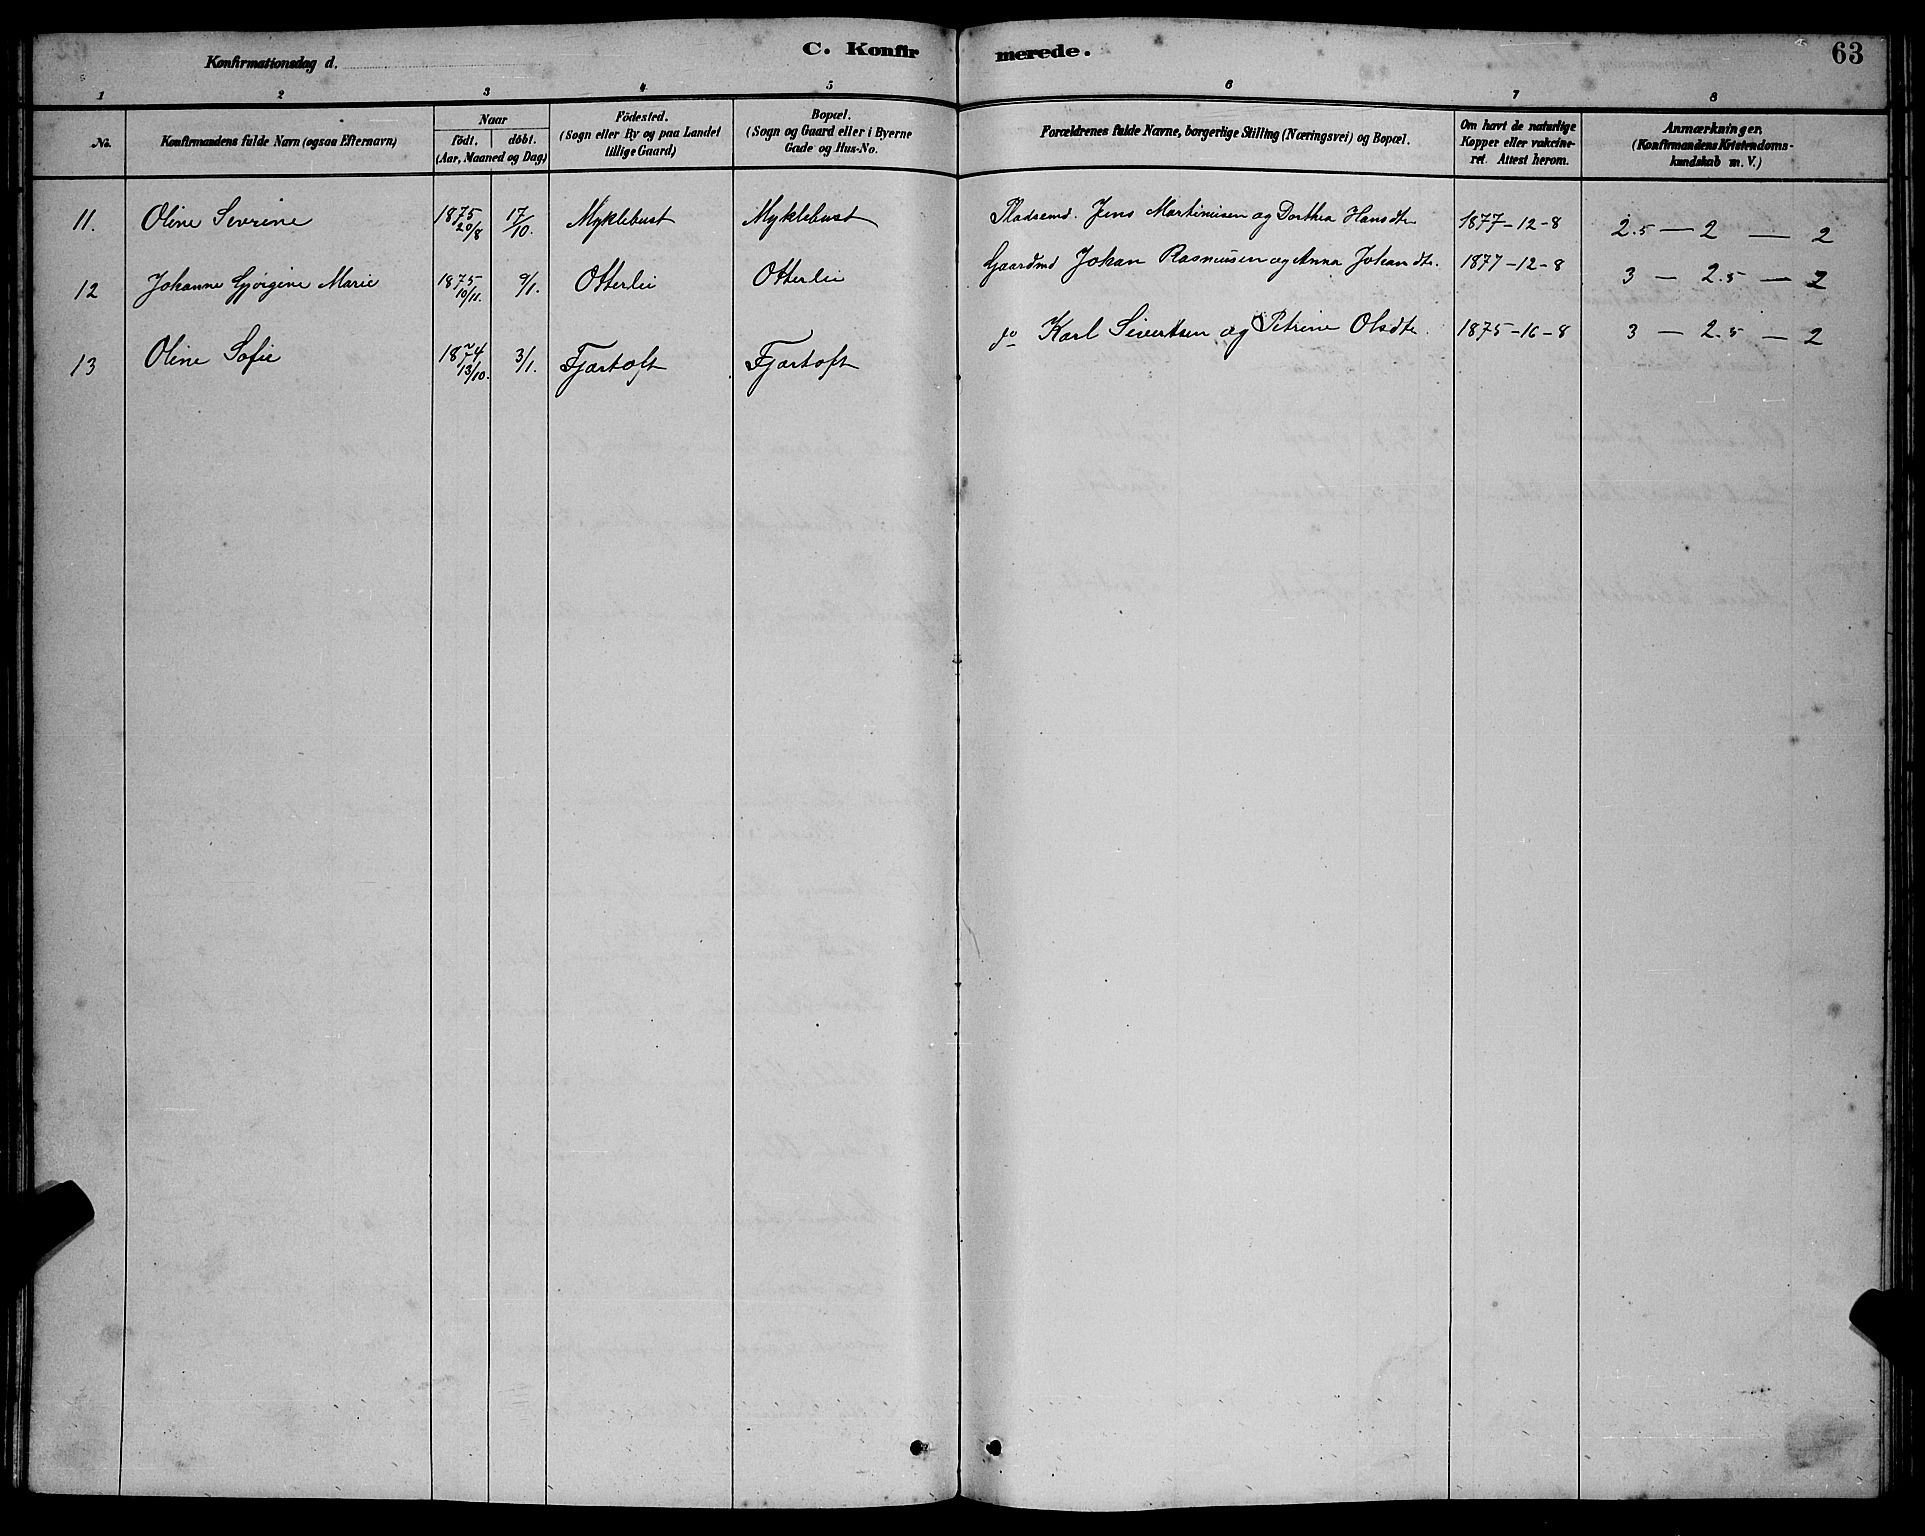 C. Konfirmerede.
63
Konfirmationsdag d.
1 2 3 4 5 6 7 8
No.
Konfirmandens fulde Navn (ogsaa Efternavn)
Naar
födt. döbt.
(Aar, Maaned og Dag)
Födested.
(Sogn eller By og paa Landet
tillige Gaard)
Bopæl.
(Sogn og Gaard eller i Byerne
Gade og Hus-No.
Forældrenes fulde Navne, borgerlige Stilling (Næringsvei) og Bopæl.
Om havt de naturlige
Kopper eller vakcine-
ret. Attest herom.
Anmærkninger.
(Konfirmandens Kristendoms-
kundskab m. V.)
11. Oline Sevrine 1875 20/8 17/10. Myklebust Myklebust Pladsemd. Jens Martinusen og Dorthea Hansdtr 1877-12-8 2.5 — 2 — 2
12 Johanne Gjørgine Marie 1875 10/11. 9/1. Otterlei Otterlei Gaardmd Johan Rasmusen og Anna Johandtr. 1877-12-8 3 — 2.5 — 2
13 Oline Sofie 1874 13/10. 3/1. Fjærtoft Fjærtoft do Karl Sivertsen og Petrine Olsdtr. 1875-16-8 3 — 2.5 — 2